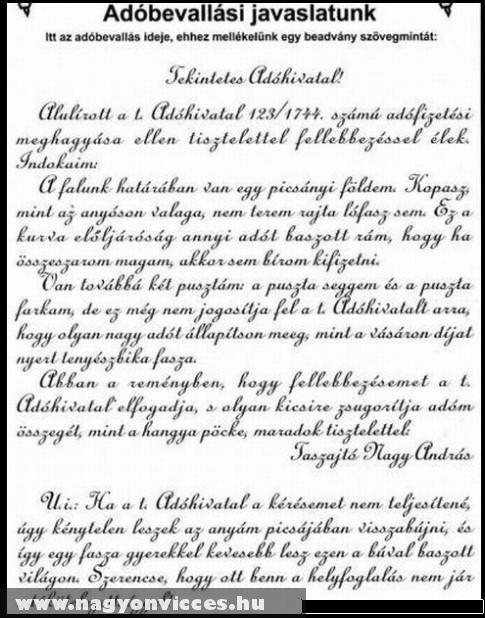 Adóbevallási javaslatunk
Itt az adóbevallás ideje, ehhez mellékelünk egy beadvány szövegmintát:
Tekintetes Adóhivatal!
Alulírott a t. Adóhivatal 123/1744. számú adófizetési
meghagyása ellen tisztelettel fellebbezéssel élek.
Indokaim:
A falunk határában van egy picsányi földem. Kopasz,
mint az anyóson valaga, nem terem rajta lófasz sem. Ez a
kurva előljáróság annyi adót baszott rám, hogy ha
összeszarom magam, akkor sem bírom kifizetni.
Van továbbá két pusztám: a puszta seggem és a puszta
farkam, de ez még nem jogosítja fel a t. Adóhivatalt arra,
hogy olyan nagy adót állapítson meeg, mint a vásáron díjat
nyert tenyészbika fasza.
Abban a reményben, hogy fellebbezésemet a t.
Adóhivatal elfogadja, s olyan kicsire zsugorítja adóm
összegét, mint a hangya pöcke, maradok tisztelettel:
Taszajtó Nagy András
U.i.: Ha a t. Adóhivatal a kérésemet nem teljesítené,
úgy kénytelen leszek az anyám picsájában visszabújni, és
így egy fasza gyerekkel kevesebb lesz ezen a búval baszott
világon. Szerencse, hogy ott benn a helyfoglalás nem jár
www.nagyonvicces.hu